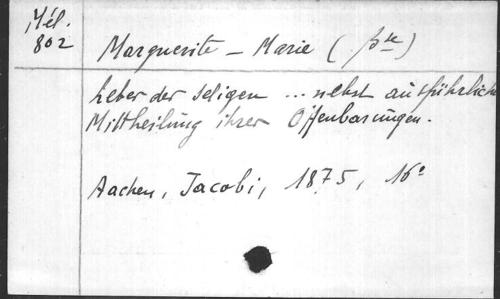 Mél.
802
Marguerite – Marie (Bse)
Leben der seligen ... nebst ausführliche
Mittheilung ihrer Offenbarungen.
Aachen, Jacobi, 1875, 16°